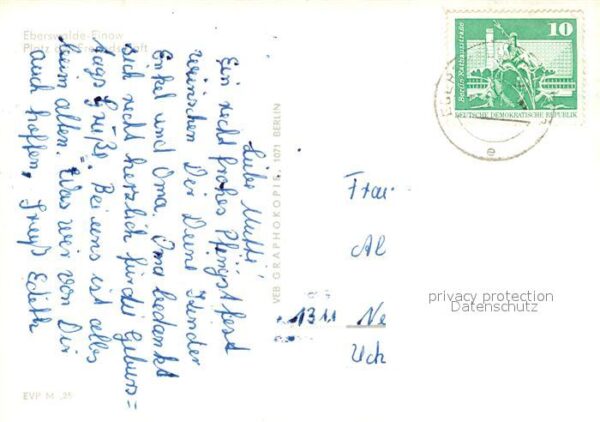 Eberswalde-Finow
Platz der Freundschaft
Liebe Mutti!
Ein recht frohes Pfingstfest
wünschen Dir Deine Kinder
Enkel und Oma. Oma bedankt
sich recht herzlich für die Geburs=
tags Grüße. Bei uns ist alles
beim alten. Was wir von Dir
auch hoffen, Gruß Edith
VEB GRAPHOKOPIE, 1071 BERLIN
EVP M ,25
10
Berlin, Rathausstraße
DEUTSCHE DEMOKRATISCHE REPUBLIK
EBERS
e
Frau
Al
1311 Ne
Uch
privacy protection
Datenschutz